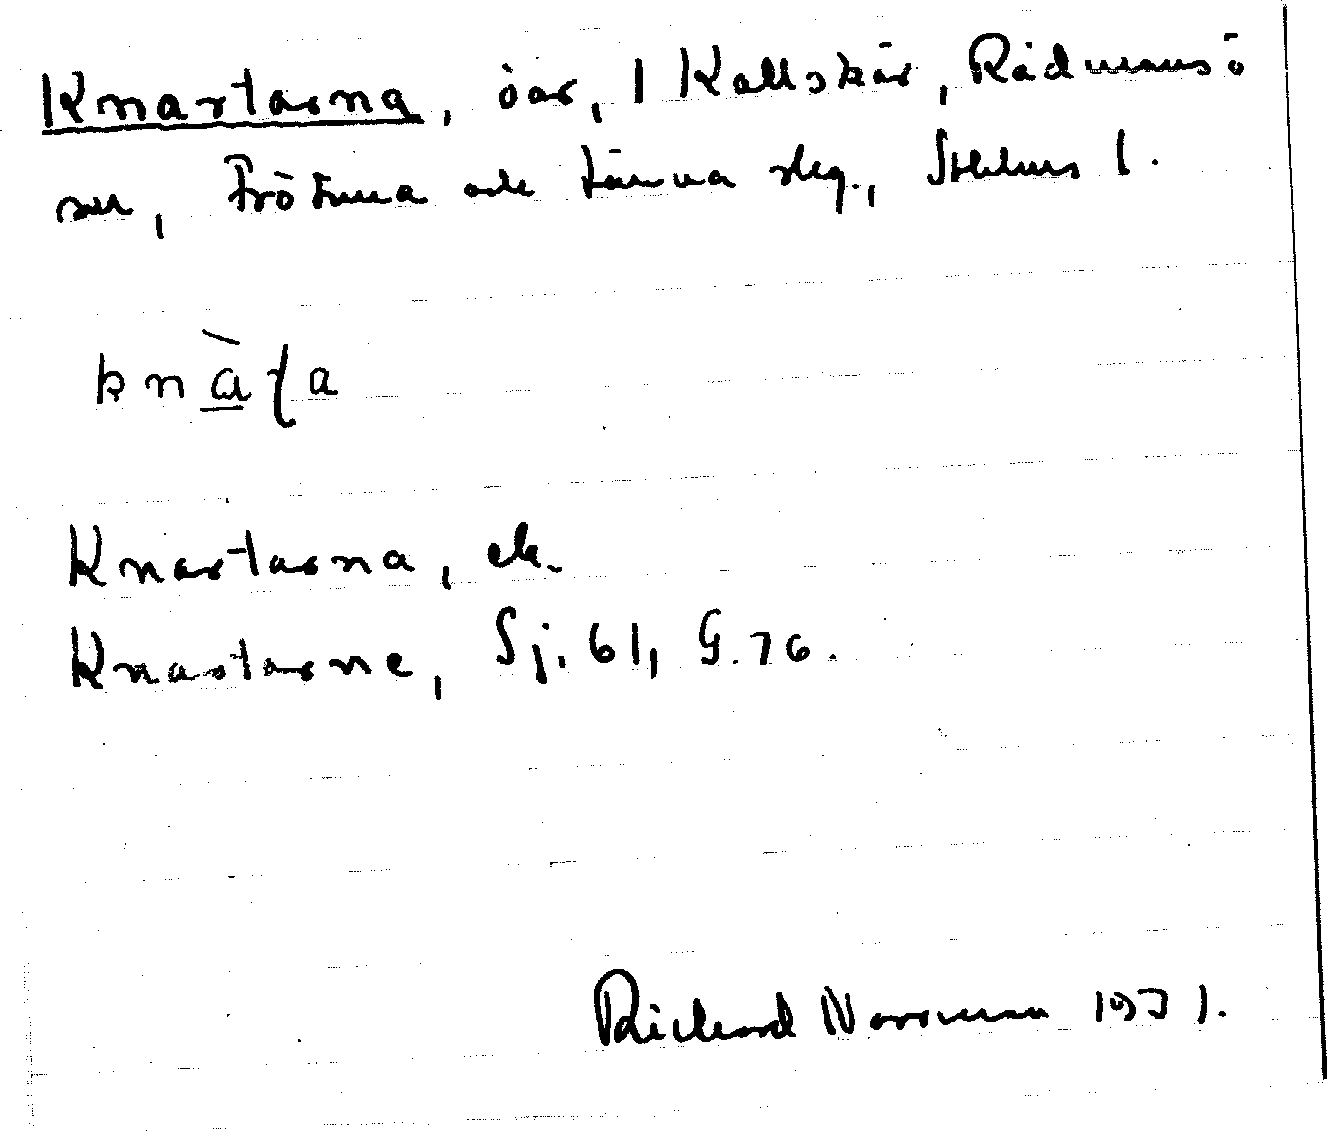 Knartarna, öar, 1 Kallskär, Rådmansö
sn, Frötuna och Länna skg., Sthlms l.
knàʈa
Knartarna, ek.
Knastarne, Sj. 61, G. 76.
Rickard Norrman 1931.